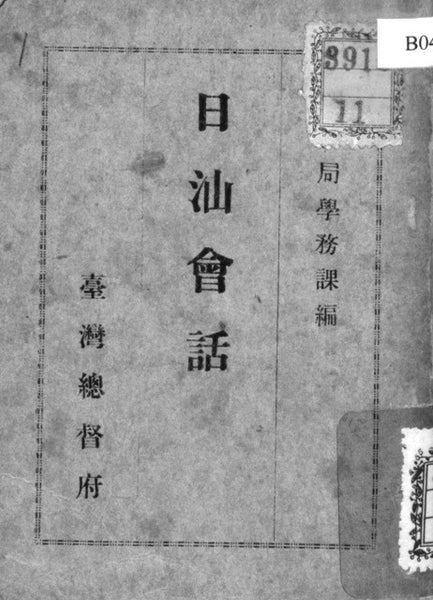 局學務課編
日汕會話
臺灣總督府
11
B04